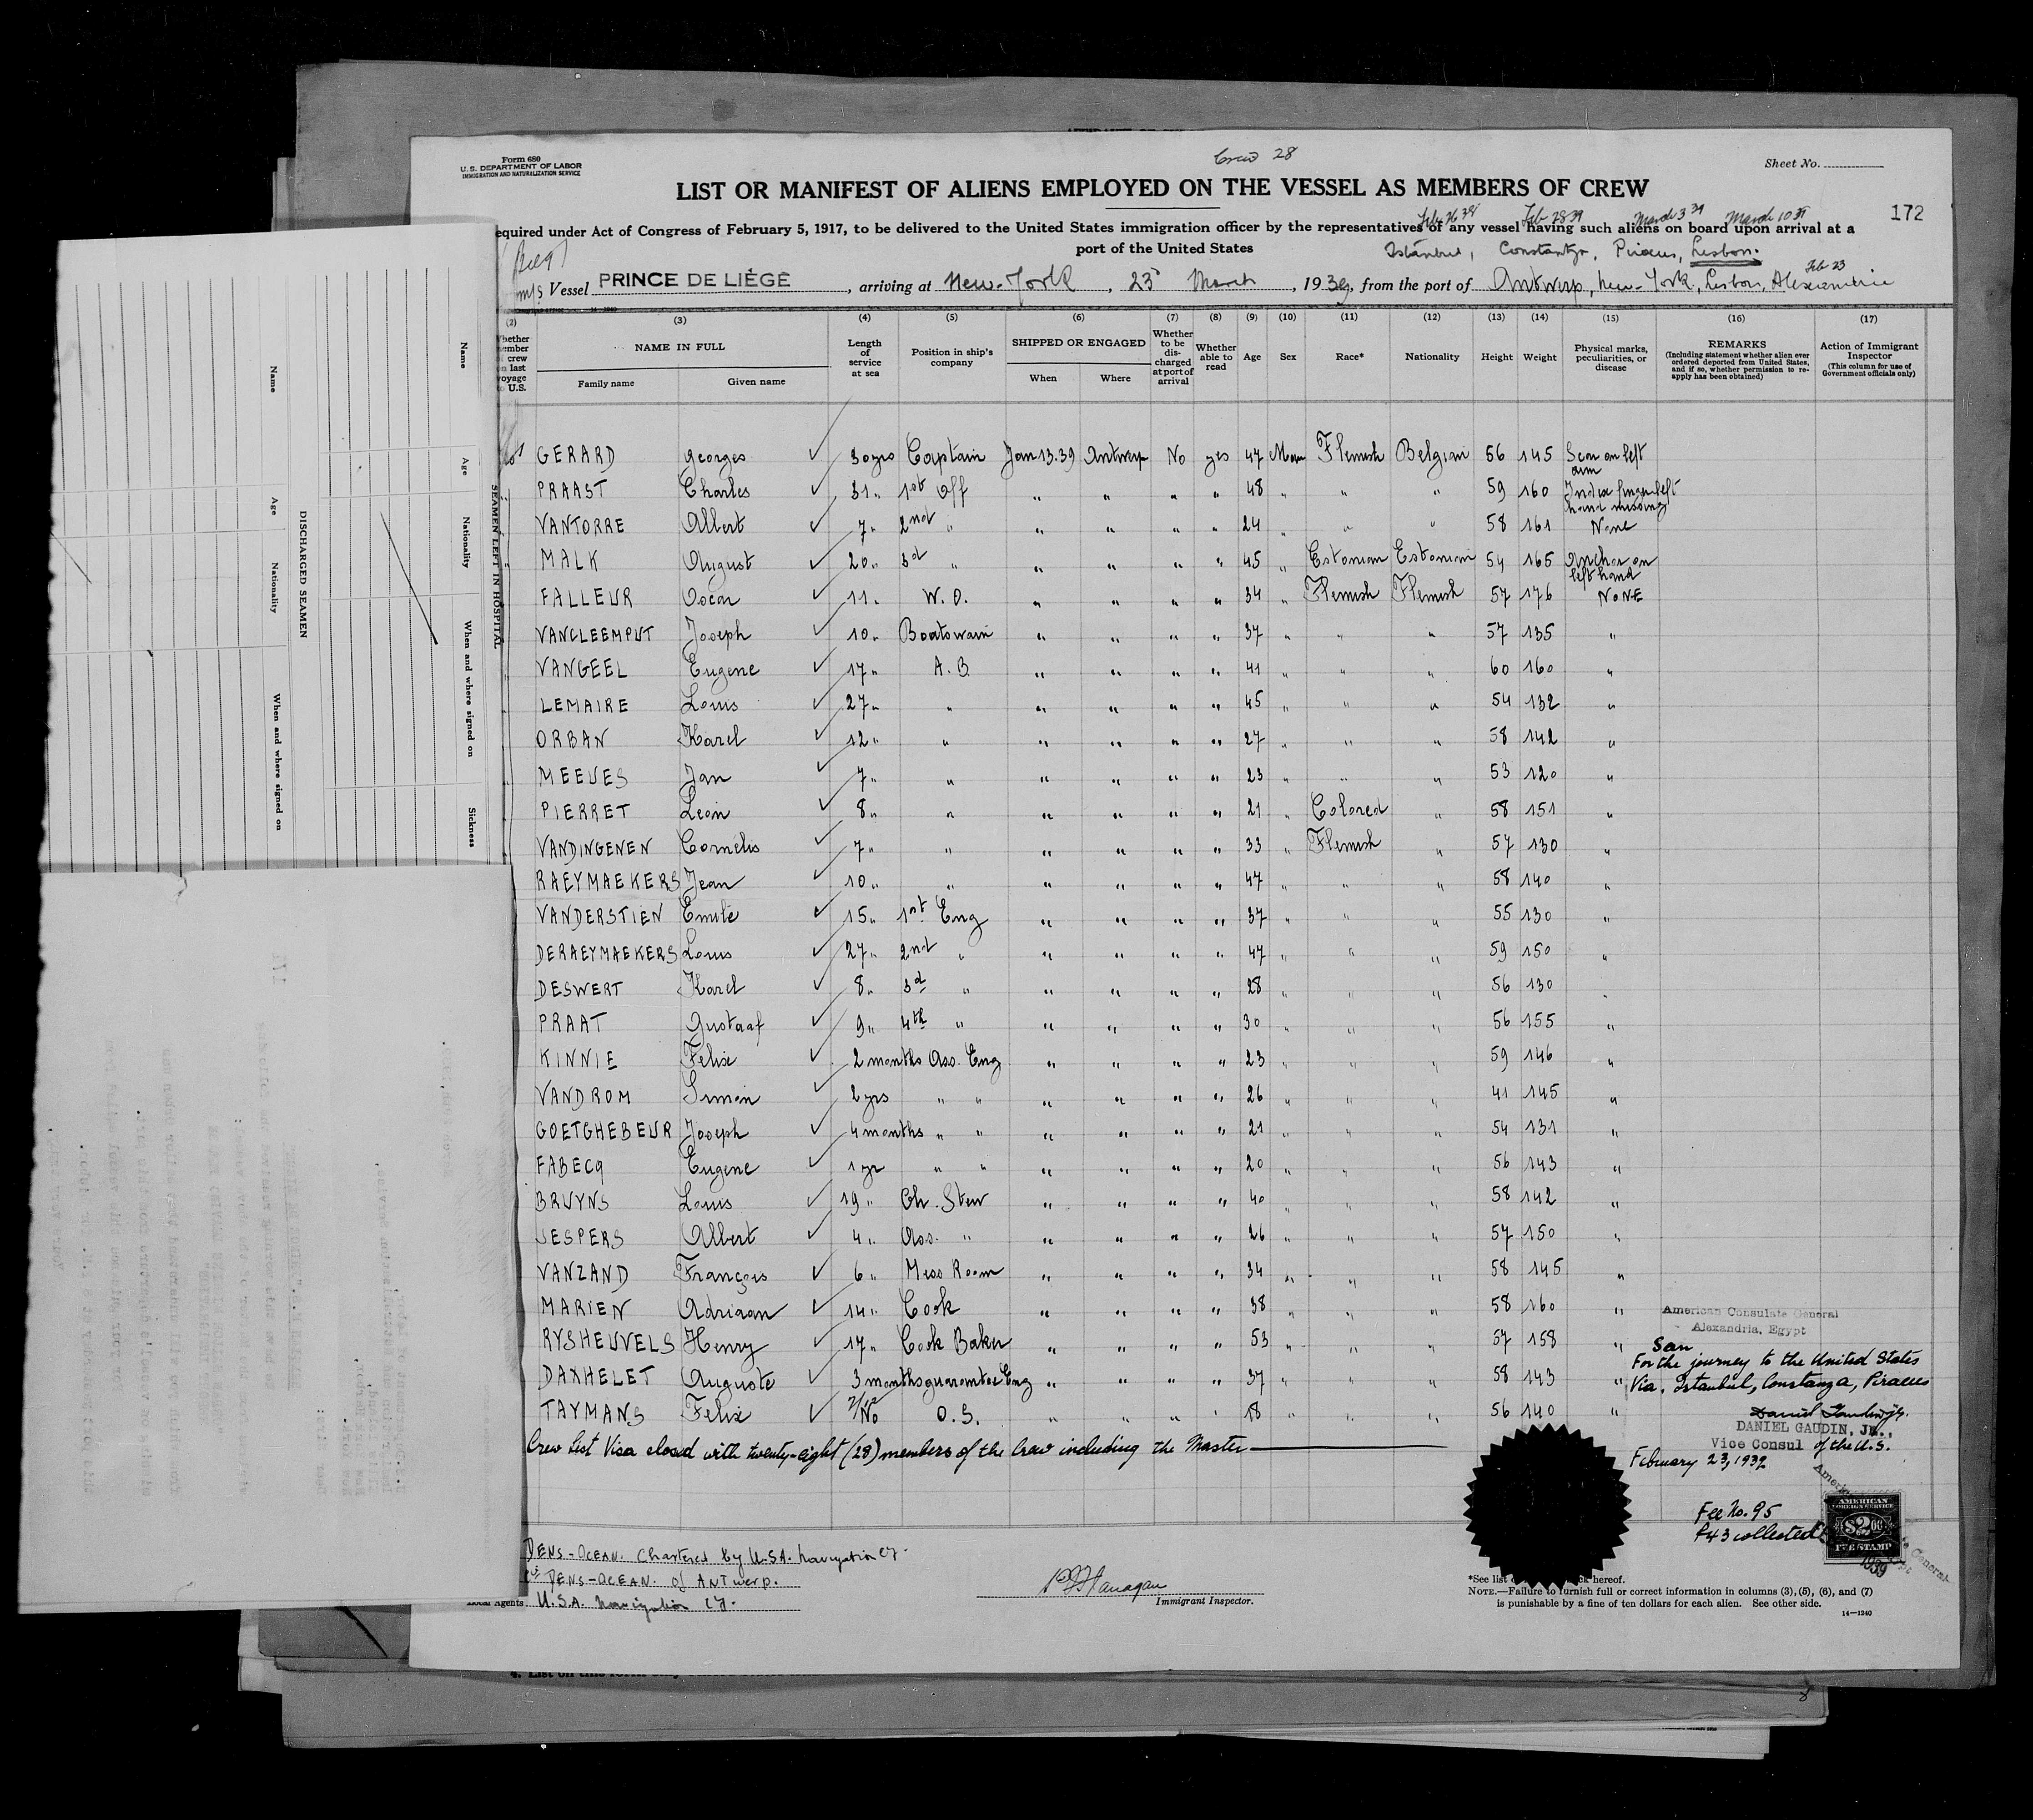 Form 680
U. S. DEPARTMENT OF LABOR
IMMIGRATION AND NATURALIZATION SERVICE
Crew 28
Sheet No.
LIST OR MANIFEST OF ALIENS EMPLOYED ON THE VESSEL AS MEMBERS OF CREW
172
Feb 26 39 Feb 28 39 March 3 39 March 10 39
equired under Act of Congress of February 5, 1917, to be delivered to the United States immigration officer by the representatives of any vessel having such aliens on board upon arrival at a
port of the United States
Istanbul, Constantza, Pireus, Lisbon.
Feb 23
m/s Vessel PRINCE DE LIÉGE , arriving at New-York , 23 March , 1939, from the port of Antwerp, New-York, Lisbon, Alexandrie
(2) (3) (4) (5) (6) (7) (8) (9) (10) (11) (12) (13) (14) (15) (16) (17)
NAME IN FULL Family name Given name Length of service at sea Position in ship's company SHIPPED OR ENGAGED When Where Whether to be discharged at port of arrival Whether able to read Age Sex Race* Nationality Height Weight Physical marks, peculiarities, or disease
REMARKS (Including statement whether alien ever ordered deported from United States, and if so, whether permission to reapply has been obtained)
Action of Immigrant Inspector (This column for use of Government officials only)
GERARD Georges 30 yrs Captain Jan 13.39 Antwerp No yes 47 Man Flemish Belgian 56 145 Scar on left arm
PRAAST Charles 31 " 1st Off " " " " 48 " " " 59 160 Index finger left hand missing
VANTORRE Albert 7 " 2nd " " " " " 24 " " " 58 161 None
MALK August 20 " 3d " " " " " 45 " Estonian Estonian 54 165 Anchor on left hand
FALLEUR Oscar 11 " W. O. " " " " 34 " Flemish Flemish 57 176 NONE
VANCLEEMPUT Joseph 10 " Boatswain " " " " 37 " " " 57 135 "
VANGEEL Eugene 17 " A. B. " " " " 41 " " " 60 160 "
LEMAIRE Louis 27 " " " " " " 45 " " " 54 132 "
ORBAN Karel 12 " " " " " " 27 " " " 58 142 "
MEEUES Jan 7 " " " " " " 23 " " " 53 120 "
PIERRET Leon 8 " " " " " " 21 " Colored " 58 151 "
VANDINGENEN Cornélis 7 " " " " " " 33 " Flemish " 57 130 "
RAEYMAEKERS Jean 10 " " " " " " 47 " " " 58 140 "
VANDERSTIEN Emile 15 " 1st Eng " " " " 37 " " " 55 130 "
DERAEYMAEKERS Louis 27 " 2nd " " " " " 47 " " " 59 150 "
DESWERT Karel 8 " 3d " " " " " 28 " " " 56 130 "
PRAAT Gustaaf 9 " 4th " " " " " 30 " " " 56 155 "
KINNIE Felix 2 months Ass. Eng " " " " 23 " " " 59 146 "
VANDROM Simon 2 yrs " " " " " " 26 " " " 41 145 "
GOETGHEBEUR Joseph 4 months " " " " " " 21 " " " 54 131 "
FABECQ Eugene 1 yr " " " " " " 20 " " " 56 143 "
BRUYNS Louis 19 " Ch. Stew " " " " 40 " " " 58 142 "
JESPERS Albert 4 " Ass. " " " " " 26 " " " 57 150 "
VANZAND François 6 " Mess Room " " " " 34 " " " 58 145 "
MARIEN Adriaan 14 " Cook " " " " 38 " " " 58 160 "
RYSHEUVELS Henry 17 " Cook Baker " " " " 53 " " " 57 158 "
DAXHELET Auguste 3 months guarantee Eng " " " " 37 " " " 58 143 "
TAYMANS Felix No O. S. " " " " 18 " " " 56 140 "
Crew List Visa closed with twenty-eight (28) members of the Crew including the Master
American Consulate General
Alexandria, Egypt
Seen
For the journey to the United States
Via. Istanbul, Constanza, Piraeus
Daniel Gaudin Jr.
DANIEL GAUDIN, JR.,
Vice Consul of the U.S.
February 23, 1939
Fee No. 95
collected
AMERICAN
FOREIGN SERVICE
$2.00
FEE STAMP
1939
DENS-OCEAN. Chartered by U.S.A. Navigation Cy.
DENS-OCEAN. of ANTwerp.
Local Agents U.S.A. Navigation Cy.
Flanagan
Immigrant Inspector.
*See list hereof.
NOTE.—Failure to furnish full or correct information in columns (3), (5), (6), and (7)
is punishable by a fine of ten dollars for each alien. See other side.
14—1240
SEAMEN LEFT IN HOSPITAL
Name Age Nationality When and where signed on Sickness
DISCHARGED SEAMEN
Name Age Nationality When and where signed on